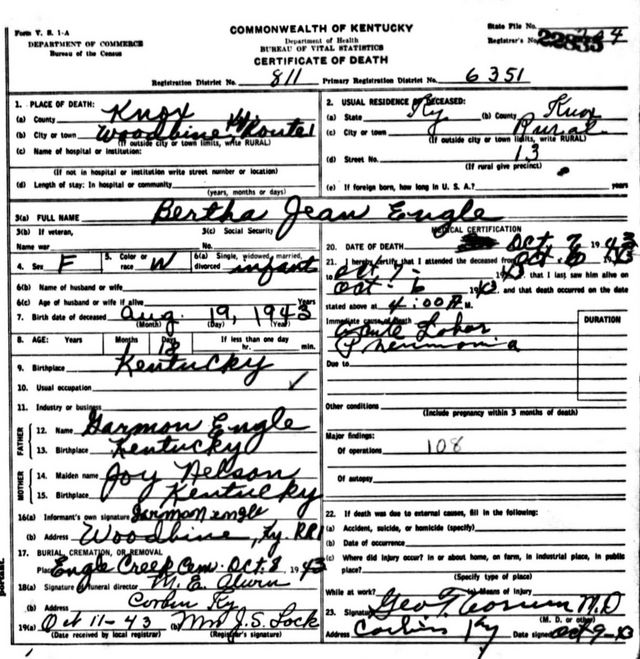 Form V. S. 1-A
DEPARTMENT OF COMMERCE
Bureau of the Census
COMMONWEALTH OF KENTUCKY
Department of Health
BUREAU OF VITAL STATISTICS
CERTIFICATE OF DEATH
State File No.
Registrar's No. 22835
Registration District No. 811
Primary Registration District No. 6351
1. PLACE OF DEATH:
(a) County Knox
(b) City or town Woodbine, Ky. Route 1
(If outside city or town limits, write RURAL)
(c) Name of hospital or institution:
(If not in hospital or institution write street number or location)
(d) Length of stay: In hospital or community
(years, months or days)
2. USUAL RESIDENCE OF DECEASED:
(a) State Ky (b) County Knox
(c) City or town Rural
(If outside city or town limits, write RURAL)
(d) Street No. 13
(If rural give precinct)
(e) If foreign born, how long in U. S. A.? years
3(a) FULL NAME Bertha Jean Engle
3(b) If veteran,
Name war
3(c) Social Security
No.
4. Sex F
5. Color or race W
6(a) Single, widowed, married, divorced infant
6(b) Name of husband or wife
6(c) Age of husband or wife if alive Years
7. Birth date of deceased Aug. 19, 1943
(Month) (Day) (Year)
8. AGE: Years Months Days If less than one day
1 18 hr. min.
9. Birthplace Kentucky
10. Usual occupation
11. Industry or business
FATHER
12. Name Garmon Engle
13. Birthplace Kentucky
MOTHER
14. Maiden name Joy Nelson
15. Birthplace Kentucky
16(a) Informant's own signature Garmon Engle
(b) Address Woodbine, Ky. RR1
17. BURIAL, CREMATION, OR REMOVAL
Place Engle Creek Cem. Oct. 8, 1943
18(a) Signature of funeral director M. E.
(b) Address Corbin Ky
19(a) Oct 11-43 (b) Mrs J. S. Lock
(Date received by local registrar) (Registrar's signature)
MEDICAL CERTIFICATION
20. DATE OF DEATH Oct. 1943
21. I hereby certify that I attended the deceased from
1943 that I last saw him alive on
Oct. 6 1943 and that death occurred on the date
stated above at 4:00 A M.
Immediate cause of death
Acute Lobar
Pneumonia
DURATION
Due to
Other conditions
(Include pregnancy within 3 months of death)
Major findings:
Of operations 108
Of autopsy
22. If death was due to external causes, fill in the following:
(a) Accident, suicide, or homicide (specify)
(b) Date of occurrence
(c) Where did injury occur? in or about home, on farm, in industrial place, in public
place?
(Specify type of place)
While at work? (e) Means of Injury
23. Signature Geo T M.D
(M. D. or other)
Address Corbin Ky Date signed Oct-9-43